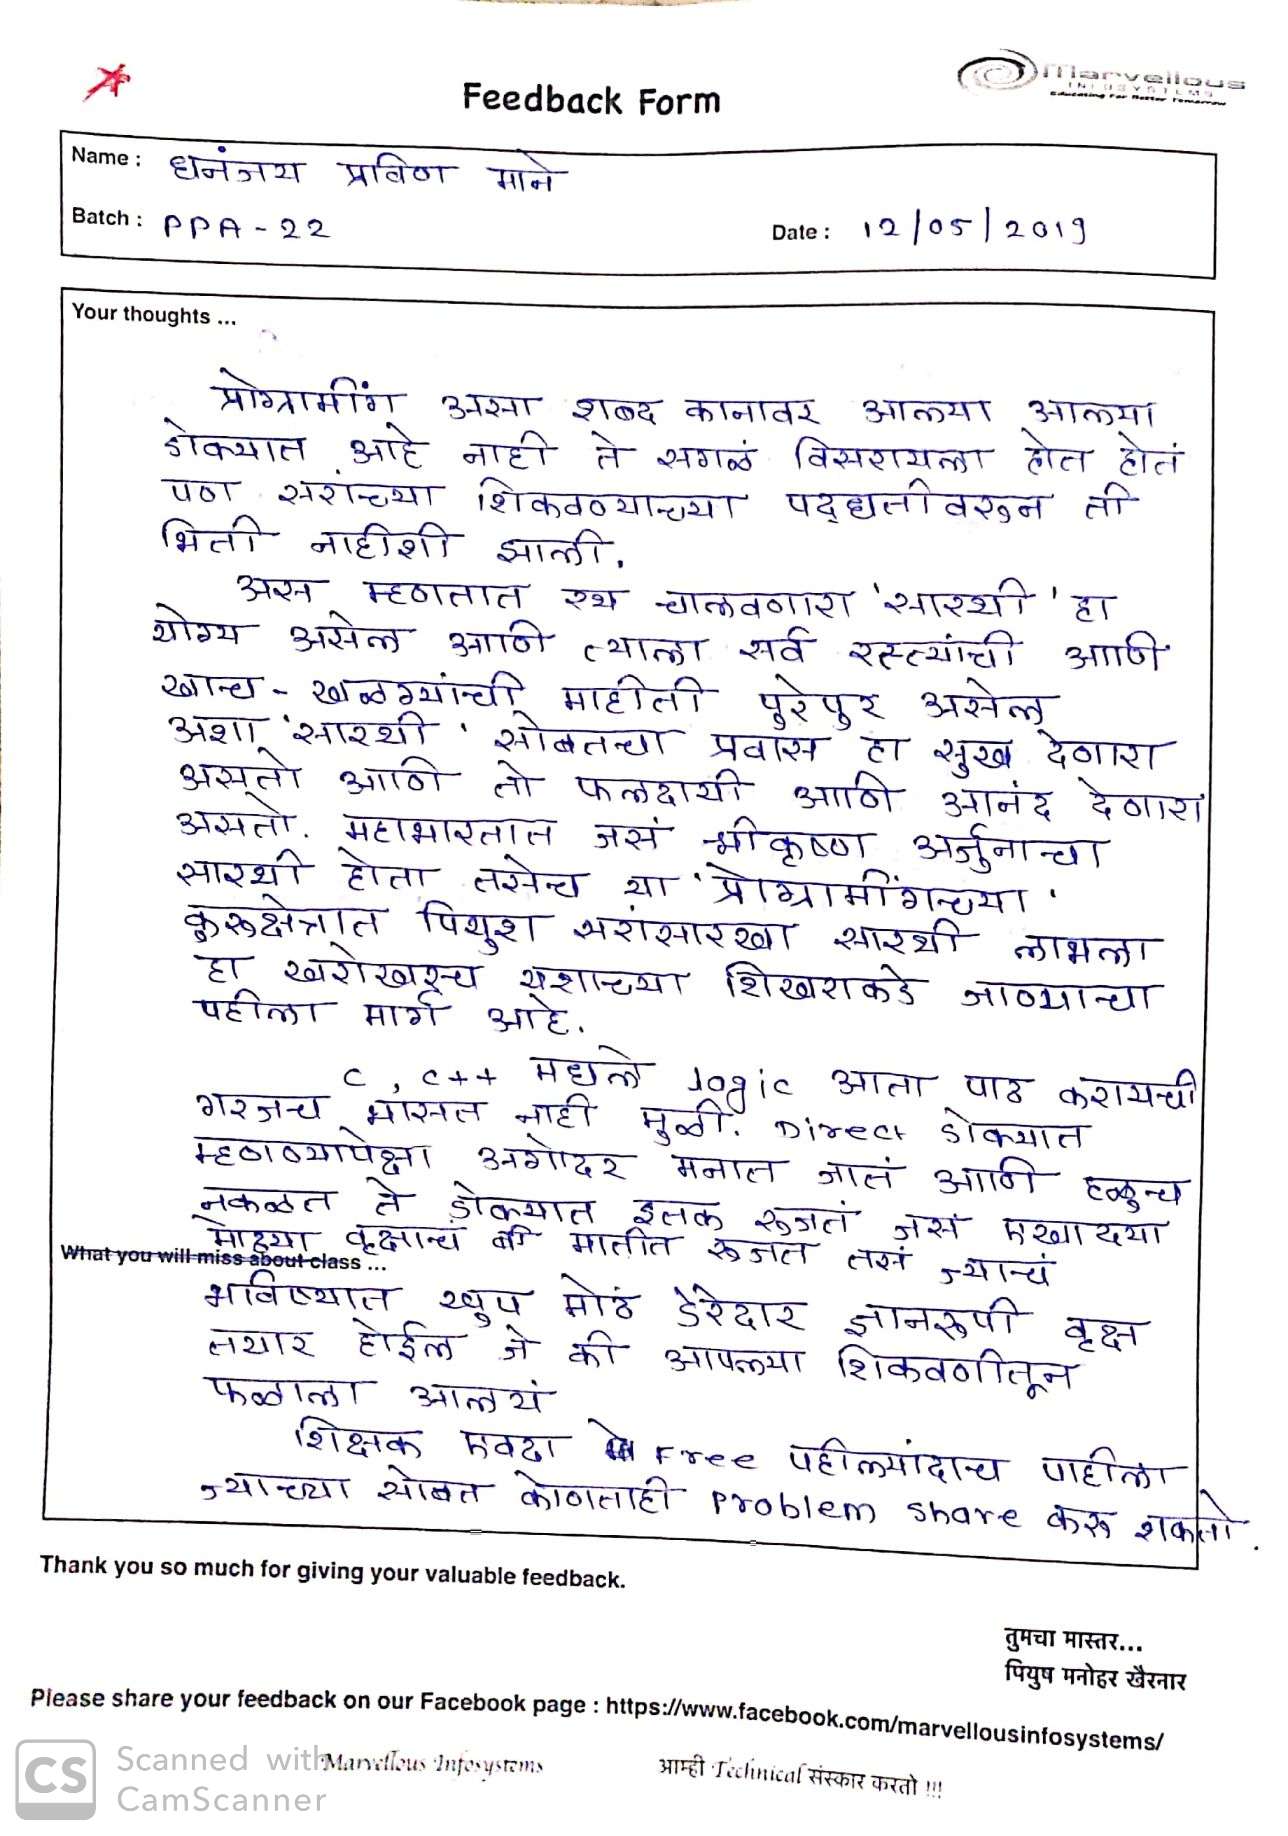 Marvellous
INFOSYSTEMS
Educating For Better Tomorrow
Feedback Form
Name : धनंजय प्रविण माने
Batch : PPA - 22
Date : 12/05/2019
Your thoughts ...
प्रोग्रामींग असा शब्द कानावर आल्या आल्या
डोक्यात आहे नाही ते सगळं विसरायला होत होतं
पण सरांच्या शिकवण्याच्या पद्धतीवरून ती
भिती नाहीशी झाली.
अस म्हणतात रथ चालवणारा 'सारथी' हा
योग्य असेल आणि त्याला सर्व रस्त्यांची आणि
खाच - खळग्यांची माहीती पुरेपुर असेल
अशा 'सारथी' सोबतचा प्रवास हा सुख देणारा
असतो आणि तो फलदायी आणि आनंद देणारा
असतो. महाभारतात जसं श्रीकृष्ण अर्जुनाचा
सारथी होता तसेच या 'प्रोग्रामींगच्या'
कुरूक्षेत्रात पियुश सरांसारखा सारथी लाभला
हा खरोखरच यशाच्या शिखराकडे जाण्याचा
पहीला मार्ग आहे.
C, C++ मधले logic आता पाठ करायची
गरजच भासत नाही मुळी. Direct डोक्यात
म्हणण्यापेक्षा अगोदर मनात जातं आणि हळुच
नकळत ते डोक्यात इतक रूजतं जसं एखादया
मोठ्या वृक्षाचं बी मातीत रूजत तसं ज्याचं
What you will miss about class ...
भविष्यात खुप मोठं डेरेदार ज्ञानरूपी वृक्ष
तयार होईल जे की आपल्या शिकवणीतून
फळाला आलयं
शिक्षक एवढा Free पहील्यांदाच पाहीला
ज्याच्या सोबत कोणताही problem share करू शकतो.
Thank you so much for giving your valuable feedback.
तुमचा मास्तर...
पियुष मनोहर खैरनार
Please share your feedback on our Facebook page : https://www.facebook.com/marvellousinfosystems/
Marvellous Infosystems आम्ही Technical संस्कार करतो !!!
CS Scanned with
CamScanner